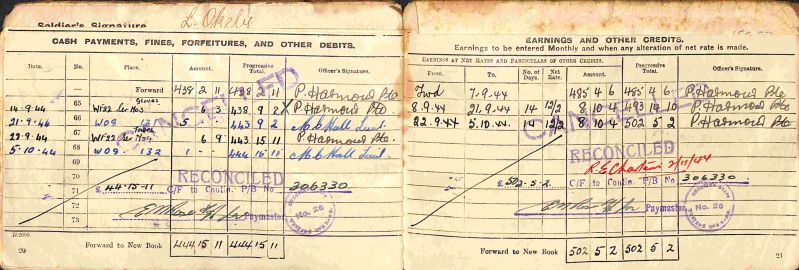 Soldier's Signature L. Okell
CASH PAYMENTS, FINES, FORFEITURES, AND OTHER DEBITS.
Date. No. Place. Amount. Progressive Total. Officer's Signature.
Forward 438 2 11 438 2 11 P. Harmond Pte
14-9-44 65 WF22 Gloves 6 3 438 9 2 P. Harmond Pte
21-9-44 66 W09 131 5 443 9 2 Hall Lieut.
22-9-44 67 WF22 6 9 443 15 11 P. Harmond Pte.
5-10-44 68 W09. 132 1 444 15 11 Hall Lieut.
69
70
CANCELLED
RECONCILED
71 £ 444-15-11 C/F to Contin. P/B No 306330
72 Paymaster
No. 26
73
D.2600.
20 Forward to New Book 444 15 11 444 15 11
EARNINGS AND OTHER CREDITS.
Earnings to be entered Monthly and when any alteration of net rate is made.
EARNINGS AT NET RATES AND PARTICULARS OF OTHER CREDITS.
From. To. No. of Days. Net Rate. Amount. Progressive Total. Officer's Signature.
Fwd 7-9-44 485 4 6 485 4 6 P. Harmond Pte
8-9-44 21-9-44 14 12/2 8 10 4 493 14 10 P. Harmond Pte
22-9-44 5-10-44 14 12/2 8 10 4 502 5 2 P. Harmond Pte
CANCELLED
RECONCILED
2/11/44
£ 502-5-2 C/F to Contin. P/B No 306330
Paymaster
No. 26
Forward to New Book 502 5 2 502 5 2
21